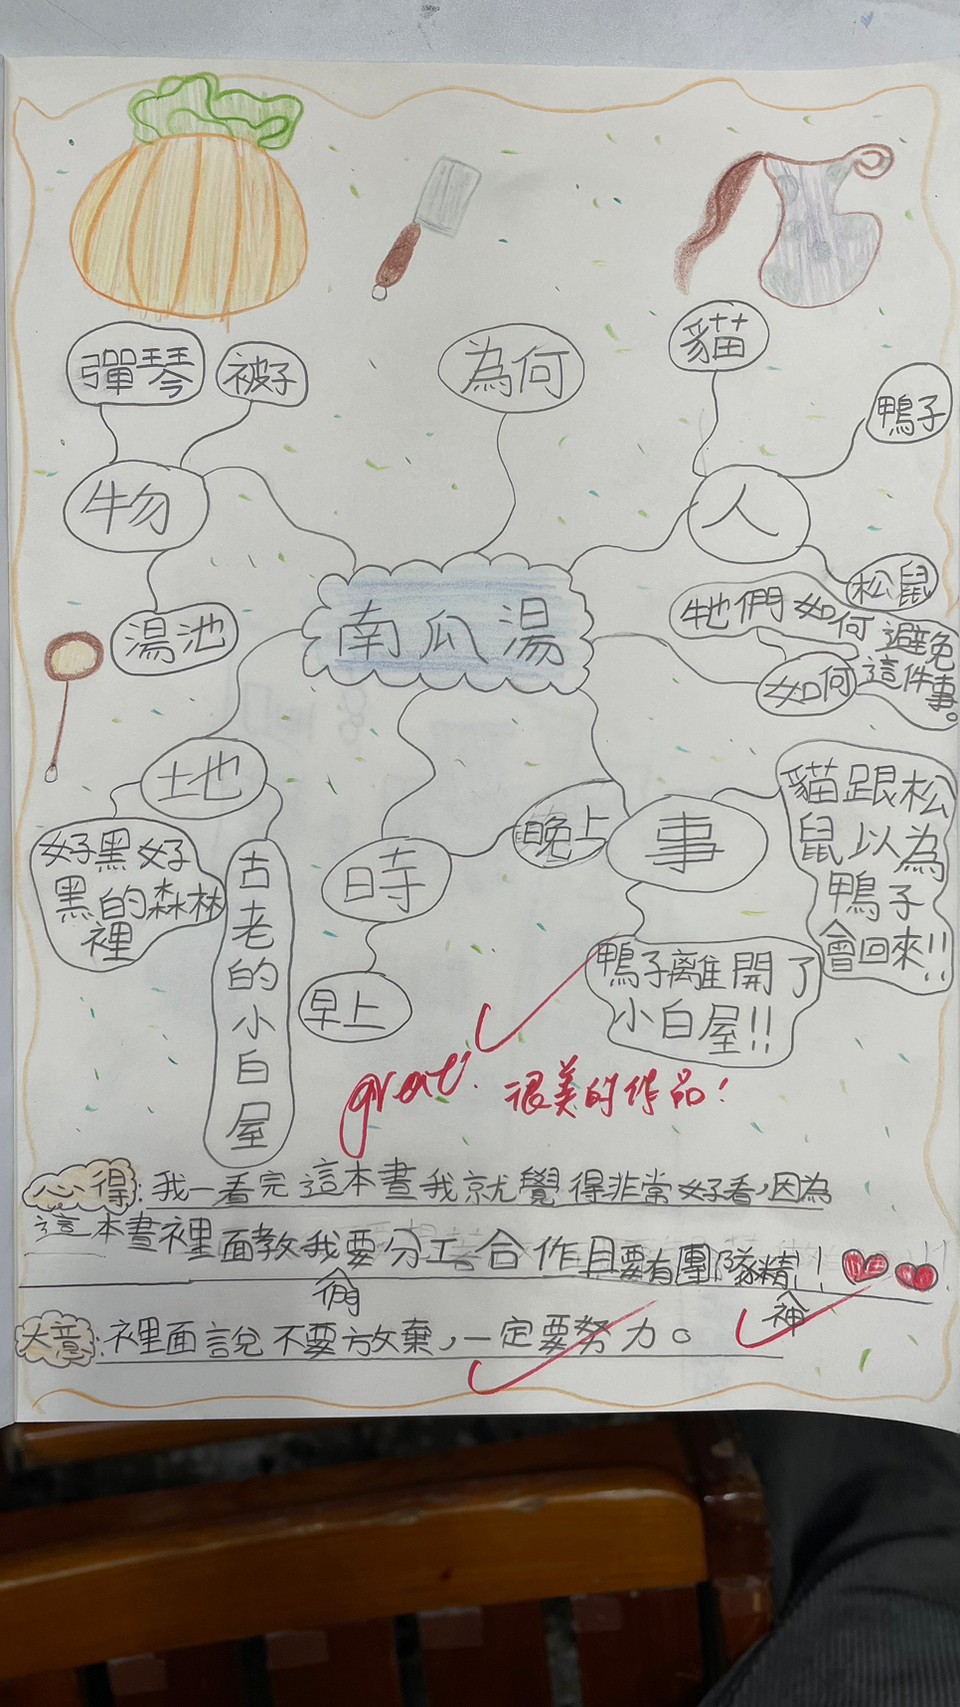 彈琴
被子
為何
貓
鴨子
物
人
松鼠
湯池
南瓜湯
牠們如何避免
這件事。
如何
土也
好黑好
黑的森林
裡
古老的小白屋
時
晚上
早上
事
貓跟松
鼠以為
鴨子
會回來!!
鴨子離開了
小白屋!!
great!
很美的作品!
心得:我一看完這本書我就覺得非常好看,因為
這本書裡面教我要分工合作且要有團隊精!!
神
大意:裡面說不要放棄,一定要努力。